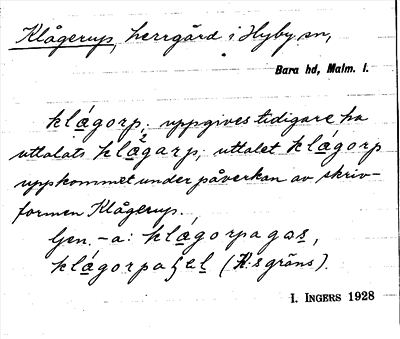 Klågerup, herrgård i Hyby sn,
Bara hd, Malm. l.
klågorp; uppgives tidigare ha
uttalats klågarp; uttalet klågorp
uppkommet under påverkan av skriv-
formen Klågerup.
Gen. -a: klågorpa gas,
klågorpa (K:s gräns).
I. INGERS 1928